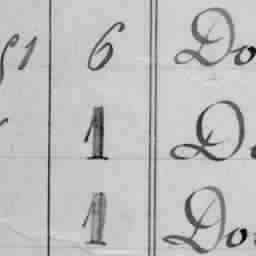 51 6 Do
1 Do
1 Do